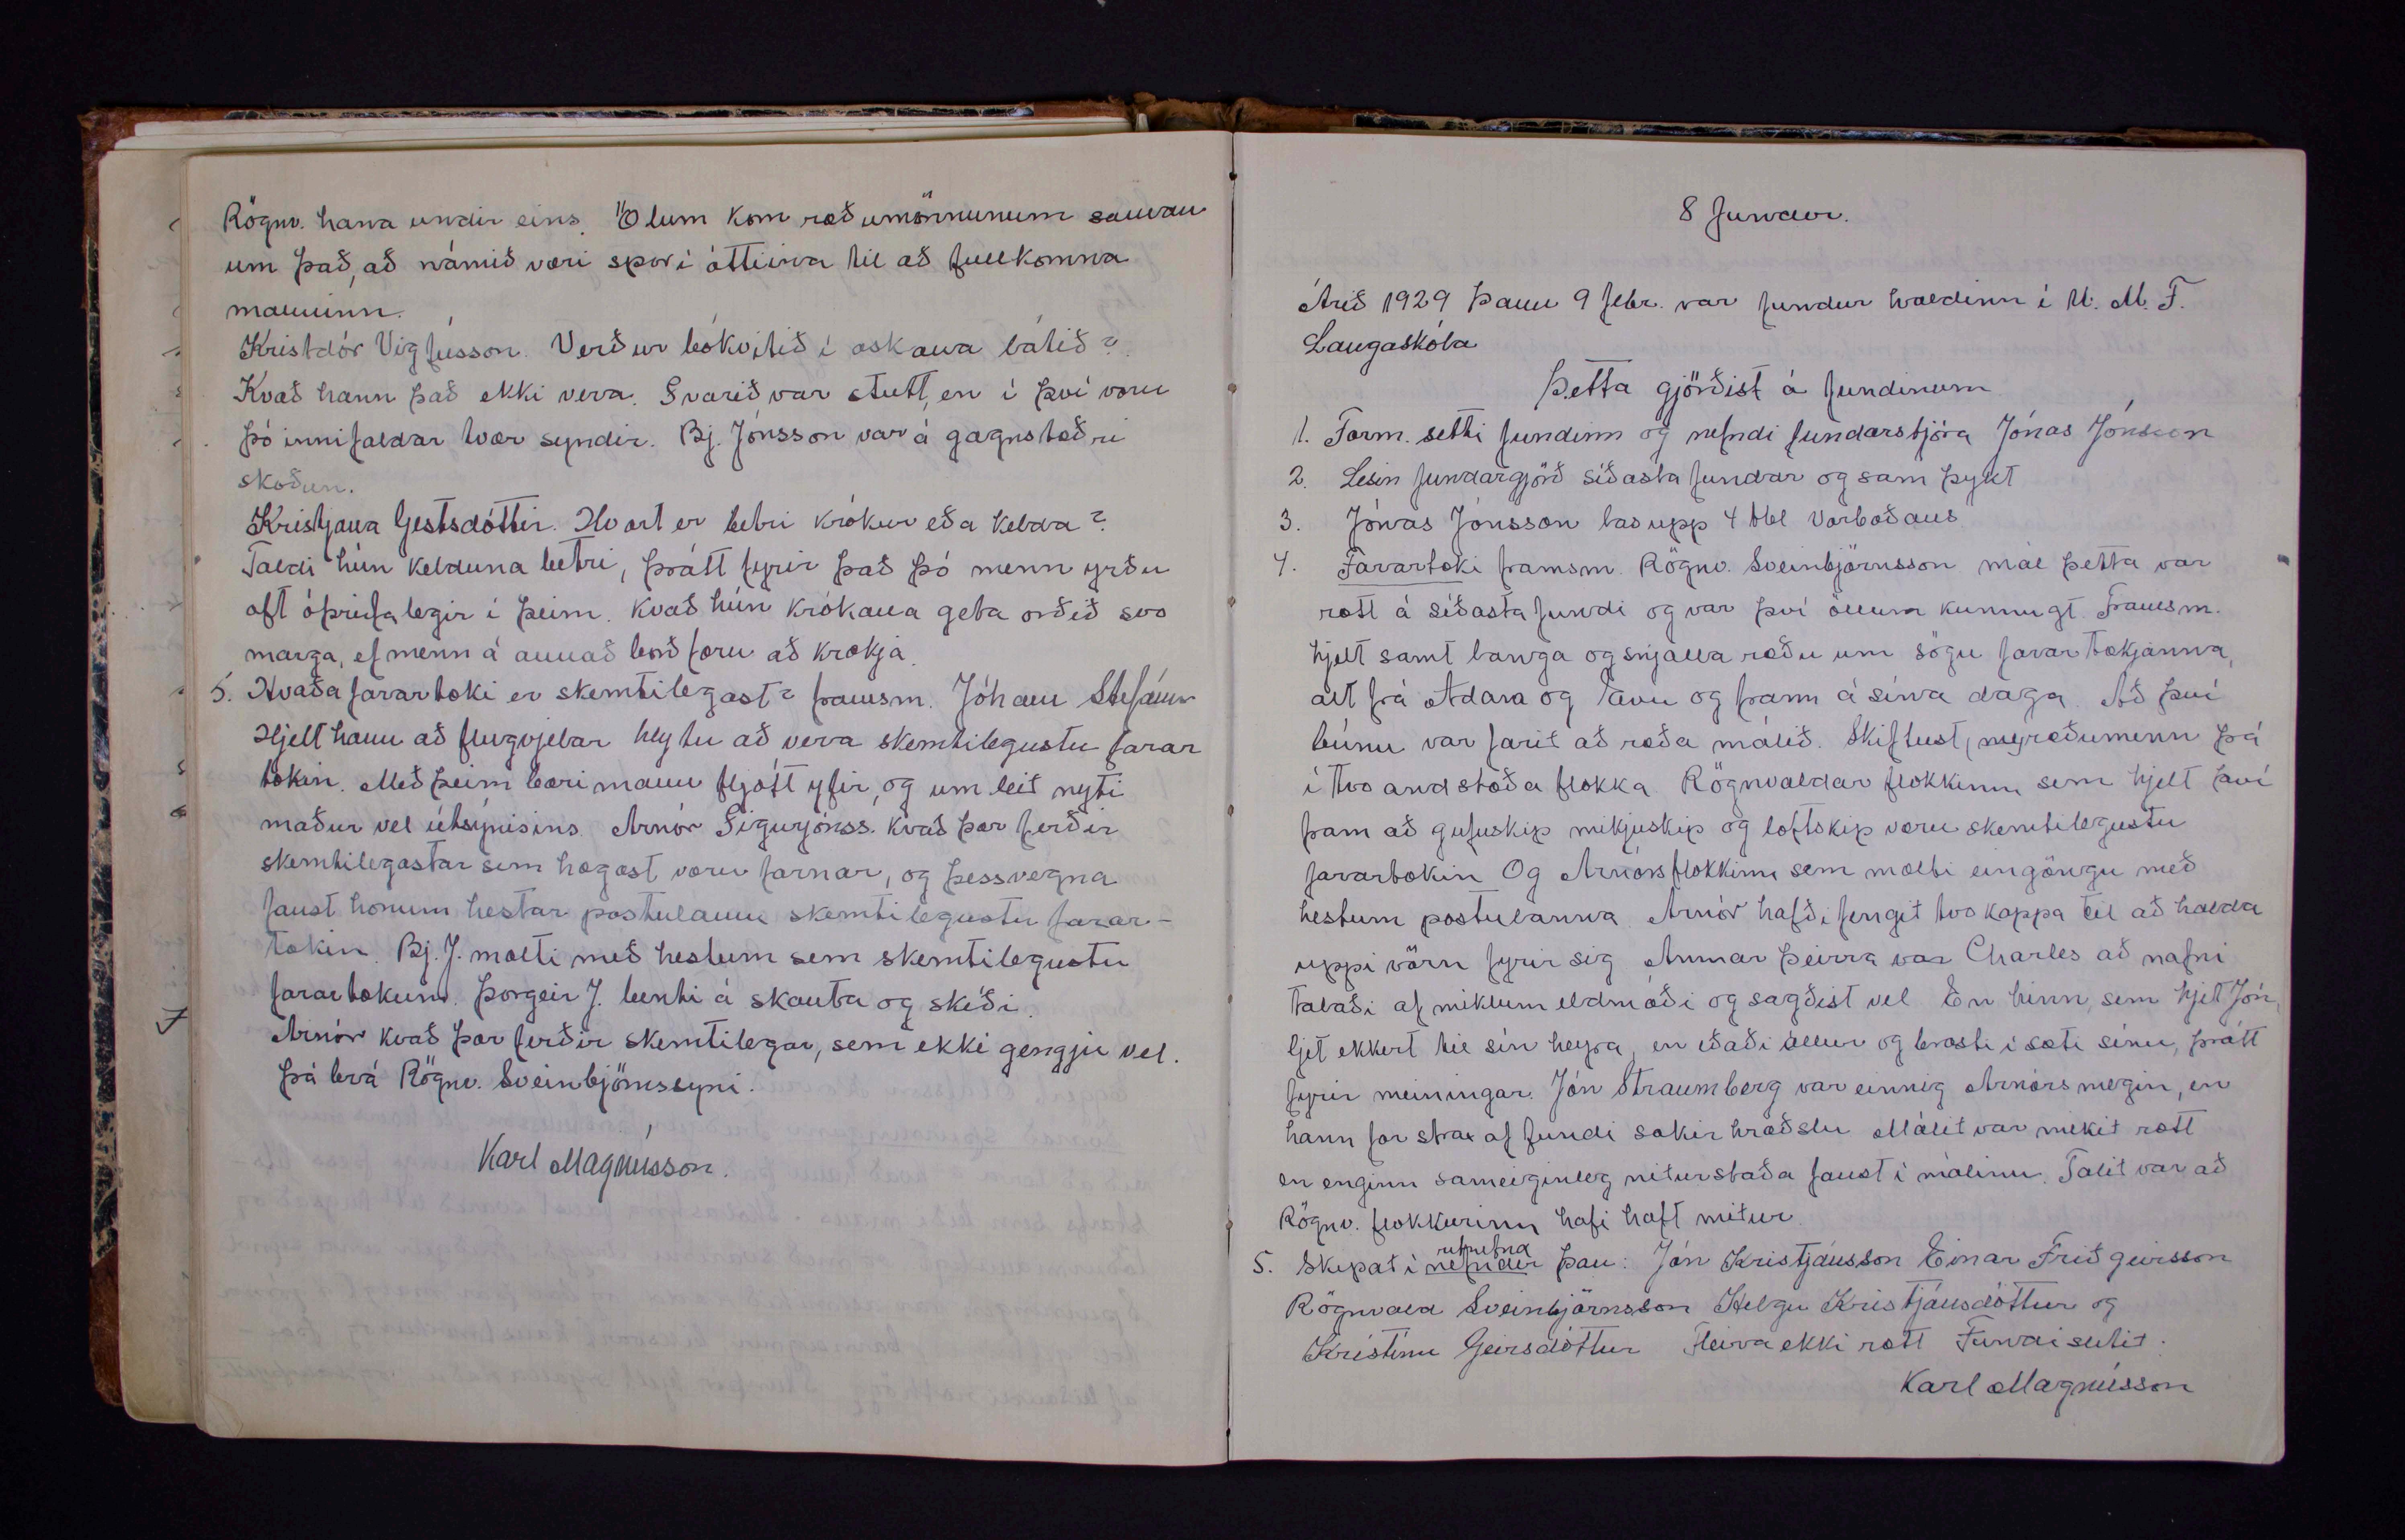 Rögnv. hana undir eins. Ölum kom ræðumönnunum saman
um það, að námið væri spor í áttiina til að fullkomna
manninn.
Kristdór Vigfússon. Verður bókvitið í askana látið?
Kvað hann það ekki vera. Svarið var stutt, en í því voru
þó innifaldar tvær syndir. Bj. Jónsson var á gagnstæðri
skoðun.
Kristjana Gestsdóttir. Hvort er betri krókur eða kelda?
Taldi hún kelduna betri, þrátt fyrir það þó menn yrðu
oft óþrifalegir í þeim. Kvað hún krókana geta orðið svo
marga, ef menn á annað borð færu að krækja.
5. Hvaða farartæki er skemtilegast? framsm. Jóhann Stefánss
Hjelt hann að flugvjelar hlytu að vera skemtilegustu farar
tækin. Með þeim bæri mann fljótt yfir, og um leið nyti
maður vel útsýnisins. Arnór Sigurjónss. kvað þær ferðir
skemtilegastar sem hægast væru farnar, og þessvegna
fanst honum hestar postulanna skemtilegustu farar-
tækin. Bj. J. mælti með hestum sem skemtilegustu
farartækum. Þorgeir J. benti á skauta og skíði.
Arnór kvað þær ferðir skemtilegar, sem ekki gengju vel.
Þá brá Rögnv. Sveinbjörnssyni.
Karl Magnússon.
8 fundur.
Árið 1929 þann 9 febr. var fundur haldinn í U. M. F.
Laugaskóla
Þetta gjörðist á fundinum
1. Form. setti fundinn og nefndi fundarstjóra Jónas Jónsson
2. Lesin fundargjörð síðasta fundar og samþykt
3. Jónas Jónsson las upp 4 tbl Varboðans
4. Farartæki framsm. Rögnv. Sveinbjörnsson mál þetta var
rætt á síðasta fundi og var því öllum kunnugt. Framsm.
hjelt samt langa og snjalla ræðu um sögu farartækjanna,
alt frá Adam og Evu og fram á sína daga. Að því
búnu var farit að ræða málið. Skiftust, nú ræðumenn þá
í tvo andstæða flokka Rögnvaldar flokkinn sem hjelt því
fram að gufuskip mikjuskip og loftskip væru skemtilegustu
farartækin Og Arnórsflokkinn sem mælti eingöngu með
hestum postulanna. Arnór hafði fengit tvo kappa til að halda
uppi vörn fyrir sig Annar þeirra var Charles að nafni
talaði af miklum eldmóði og sagðist vel. En hinn, sem hjet Jón,
ljet ekkert til sín heyra, en iðaði allur og brosti í sæti sínu, þrátt
fyrir meiningar. Jón Straumberg var einnig Arnórs megin, en
hann for strax af fundi sökir hræðslu Málit var mikit rætt
en enginn sameiginleg niturstaða fanst í málinu. Talit var að
Rögnv. flokkurinn hafi haft mitur
5. Skipat í nefndir ritnefnd þau: Jón Kristjánsson Einar Friðgeirsson
Rögnvald Sveinbjörnsson Helgu Kristjánsdóttur og
Kristínu Geirsdóttur Fleira ekki rætt Fundi slitit.
Karl Magnússon